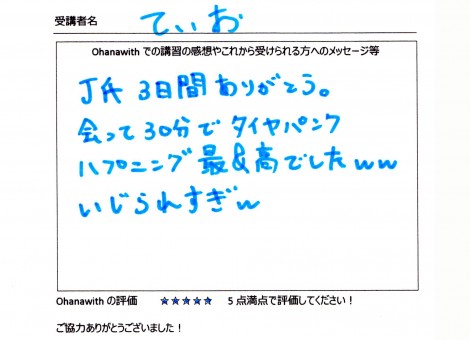 受講者名 てぃお
Ohanawith での講習の感想やこれから受けられる方へのメッセージ等
J氏 3日間ありがとう。
会って30分でタイヤパンク
ハプニング最&高でしたww
いじられすぎw
Ohanawith の評価 ★★★★★ 5 点満点で評価してください！
ご協力ありがとうございました！